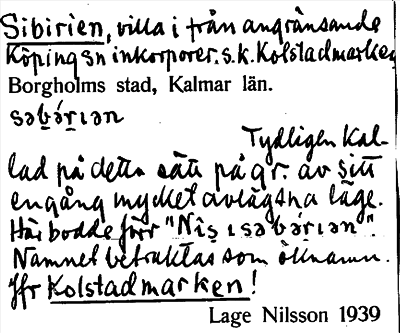 Sibirien, villa i från angränsande
Köpings sn inkorporer. s.k. Kolstadmarken
Borgholms stad, Kalmar län.
səbi̯rɪən
Tydligen kal-
lad på detta sätt på gr. av sitt
en gång mycket avlägsna läge.
Här bodde förr "Nis ɪ səbi̯rɪən".
Namnet betraktas som öknamn.
Jfr Kolstadmarken!
Lage Nilsson 1939